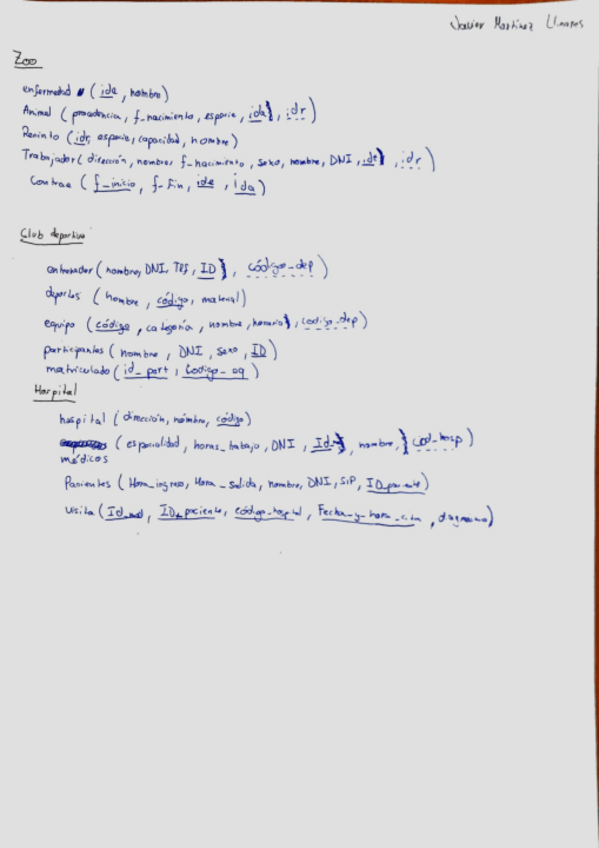 Javier Martinez Llinares
Zoo
enfermedad (ide, nombre)
Animal (procedencia, f_nacimiento, especie, ida), idr)
Recinto (idr, especie, capacidad, nombre)
Trabajador (dirección, nombres f_nacimiento, sexo, nombre, DNI, idt), idr)
Contrae (f_inicio, f_fin, ide, ida)
Club deportivo
entrenador (nombre, DNI, Tlf, ID), código_dep)
deportes (nombre, código, material)
equipo (código, categoría, nombre, horario), codigo_dep)
participantes (nombre, DNI, sexo, ID)
matriculado (id_part, Codigo_eq)
Hospital
hospital (dirección, nombre, código)
(especialidad, horas_trabajo, DNI, nombre, cod_hosp)
médicos
Pacientes (Hora_ingreso, Hora_salida, nombre, DNI, SIP, ID_paciente)
visita (Id_med, ID_paciente, código_hospital, Fecha_y_hora_cita, diagnostico)